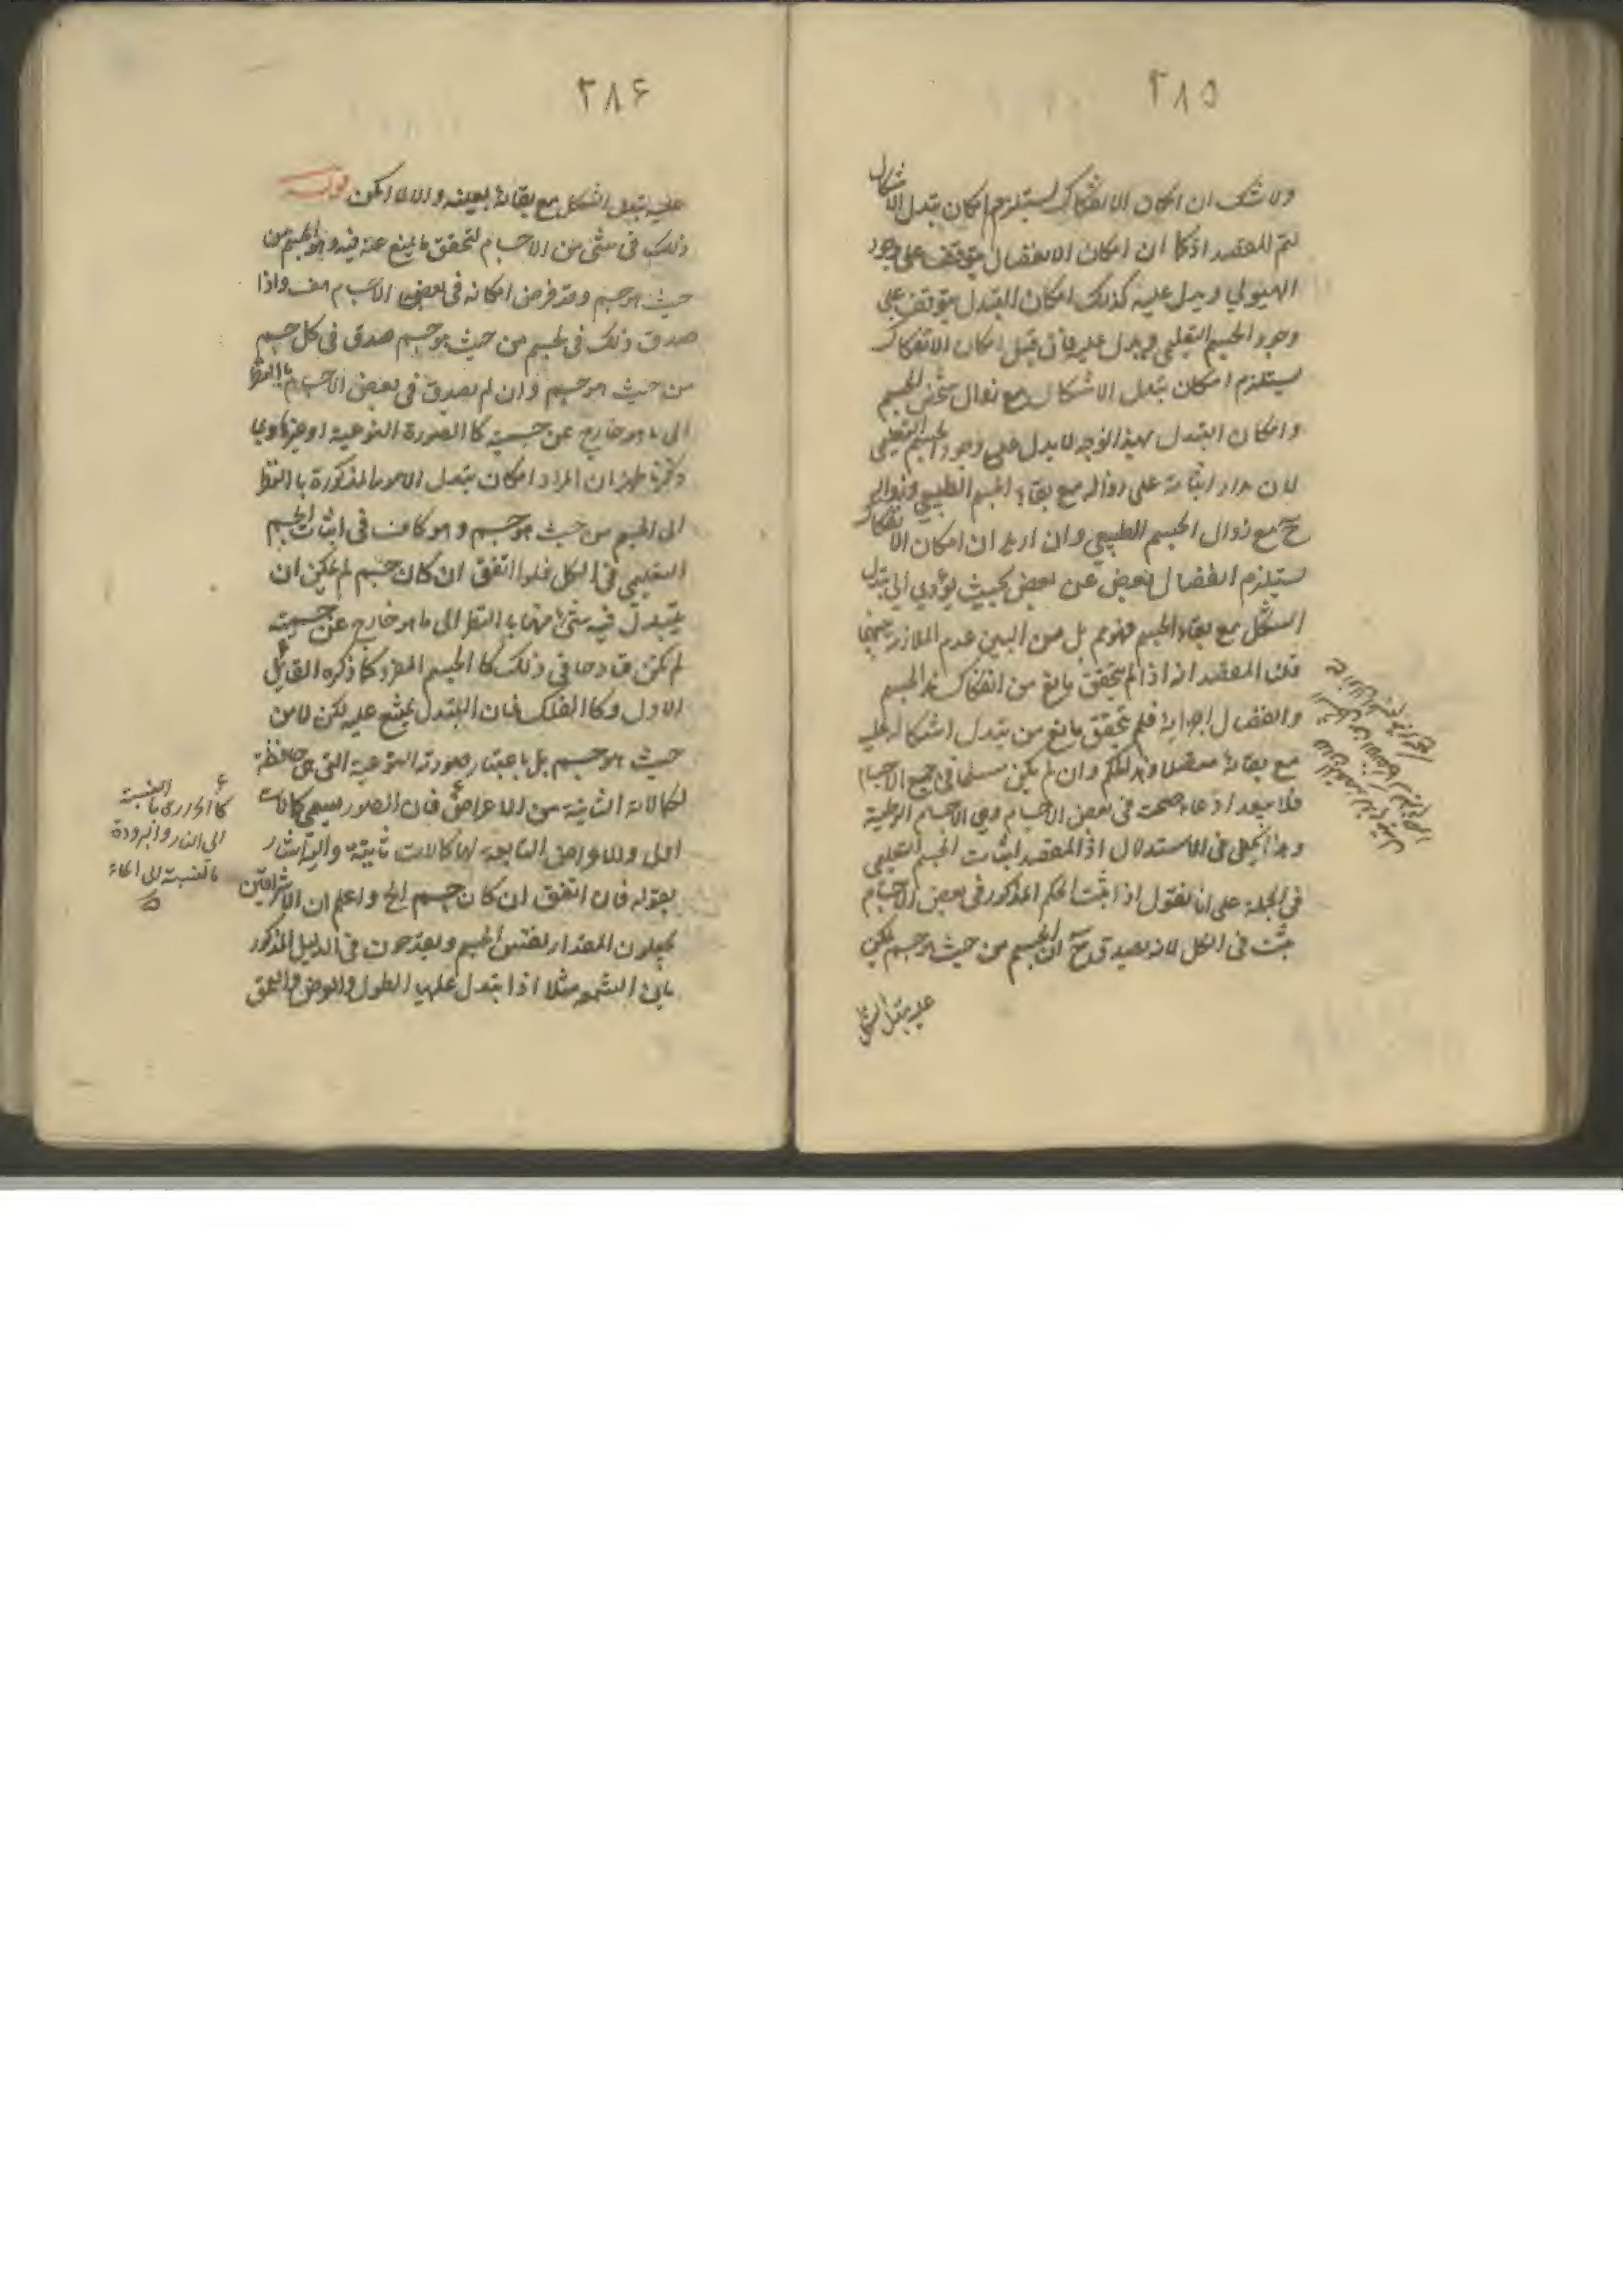 ٢٨٥
ولا شك ان امكان الانفكاك يستلزم امكان تبدل الاشكال
لتم المقصد اذ كما ان امكان الانفصال يتوقف على وجود
الهيولي ويدل عليه كذلك امكان التبدل يتوقف على
وجود الجسم التعليمي ويدل عليه فان قيل امكان الانفكاك
يستلزم امكان تبدل الاشكال مع زوال شخص الجسم
وامكان التبدل بهذا الوجه لا يدل على وجود الجسم التعليمي
لان مدار اثباته على زواله مع بقاء الجسم الطبيعي وزواله
ح مع زوال الجسم الطبيعي وان اريد ان امكان الانفكاك
يستلزم انفصال بعض عن بعض بحيث يؤدي الى تبدل
الشكل مع بقاء الجسم فهو مم بل من البين عدم الملازمة بينهما
قلت المقصد انه اذا لم يتحقق مانع من انفكاك هذا الجسم
وانفصال اجزاية فلم يتحقق مانع من تبدل اشكاله عليه
مع بقائه متصلا وهذا الحكم وان لم يكن مسلما في جميع الاجسام
فلا يبعد ادعاء صحته في بعض الاجسام وهي الاجسام الرطبة
وهذا يكفي في الاستدلال اذ المقصد اثبات الجسم التعليمي
في الجملة على انا نقول اذا ثبت الحكم المذكور في بعض الاجسام
ثبت في الكل لانه يصدق ح ان الجسم من حيث هو جسم يمكن
عليه تبدل الشكل
٢٨۶
عليه تبدل الشكل مع بقائه بعينه والا لما امكن
ذلك في شئ من الاجسام لتحقق ما يمنع عنه فيه وهو الجسم من
حيث هو جسم وقد فرض امكانه في بعض الاجسام هف واذا
صدق ذلك في الجسم من حيث هو جسم صدق في كل جسم
من حيث هو جسم وان لم يصدق في بعض الاجسام بالنظر
الى ما هو خارج عن جسميته كالصورة النوعية او غيرها وبما
ذكرنا ظهر ان المراد امكان تبدل الامور المذكورة بالنظر
الى الجسم من حيث هو جسم وهو كاف في اثبات الجسم
التعليمي في الكل فلو اتفق ان كان جسم لم يمكن ان
يتبدل فيه شئ منها بالنظر الى ما هو خارج عن جسميته
لم يكن قادحا في ذلك كالجسم المفرد كما ذكره القايل
الاول وكالفلك فان التبدل يمتنع عليه لكن لا من
حيث هو جسم بل باعتبار صورته النوعية التي هي حافظة
لكمالاته الثانية من الاعراض فان الصور يسمى كمالات
اولى والاعراض التابعة لها كمالات ثانية واليه اشار
بقوله فان اتفق ان كان جسم الخ واعلم ان الاشراقيين
يجعلون المقدار نفس الجسم ويقدحون في الدليل المذكور
بان الشمعة مثلا اذا تبدل عليها الطول والعرض والعمق
كالحرارة بالنسبة
الى النار والبرودة
بالنسبة الى الماء